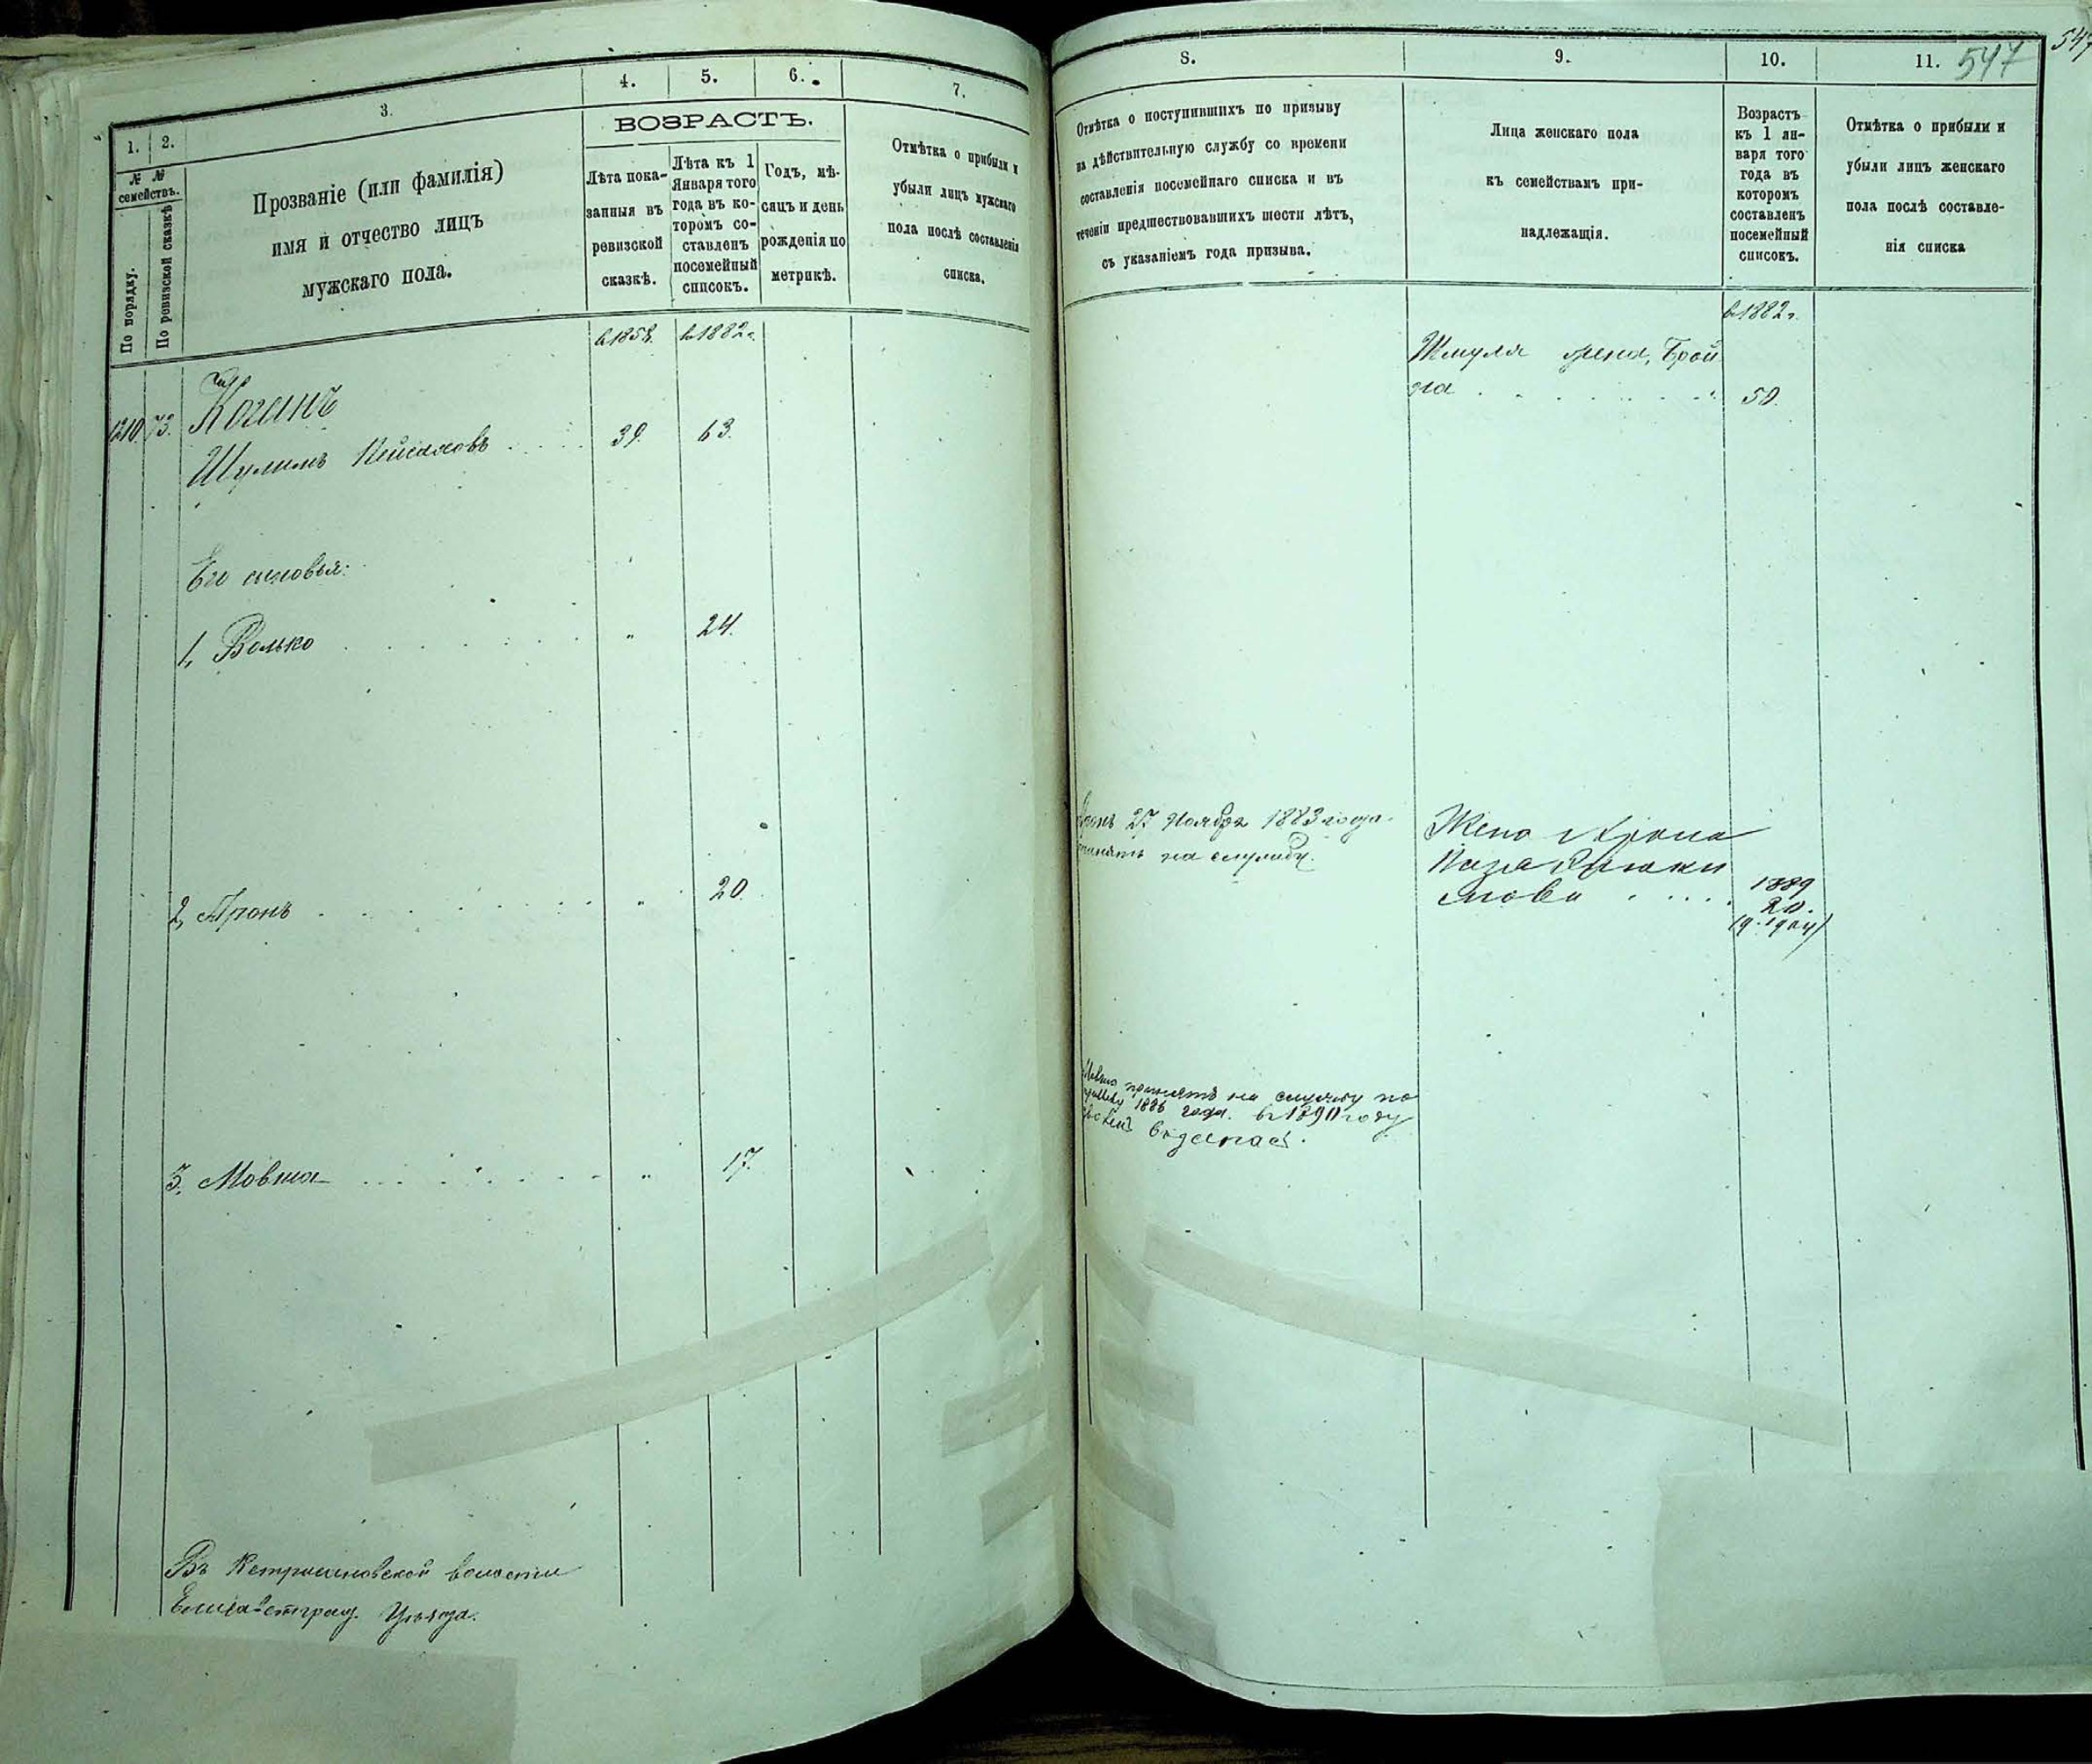 1.
2.
3.
4.
5.
6.
7.
№ №
семействъ.
По порядку.
По ревизской сказкѣ
Прозваніе (или фамилія)
имя и отчество лицъ
мужскаго пола.
ВОЗРАСТЪ.
Лѣта пока-
занныя въ
ревизской
сказкѣ.
Лѣта къ 1
Января того
года въ ко-
торомъ со-
ставленъ
посемейный
списокъ.
Годъ, мѣ-
сяцъ и день
рожденія по
метрикѣ.
Отмѣтка о прибыли и
убыли лицъ мужскаго
пола послѣ составленія
списка.
в 1858. в 1882 г.
1210. 73. Коганъ
Шулимъ 39. 63.
Его сыновья:
1, Волько " 24.
2, Аронъ " 20.
3. Мовша " 17.
Въ волости
Елисаветград. Уѣзда.
8.
9.
10.
11.
547
547
Отмѣтка о поступившихъ по призыву
на дѣйствительную службу со времени
составленія посемейнаго списка и въ
теченіи предшествовавшихъ шести лѣтъ,
съ указаніемъ года призыва.
Лица женскаго пола
къ семействамъ при-
надлежащія.
Возрастъ
къ 1 ян-
варя того
года въ
которомъ
составленъ
посемейный
списокъ.
Отмѣтка о прибыли и
убыли лицъ женскаго
пола послѣ составле-
нія списка
в 1882 г.
жена, Брой
на 50.
Аронъ 27 Ноября 1883 года
принятъ на службу.
Жена Арона
1889
20.
(9. 1904)
Мовша принятъ на службу по
призыву 1886 года. в 1890 году
в запас.